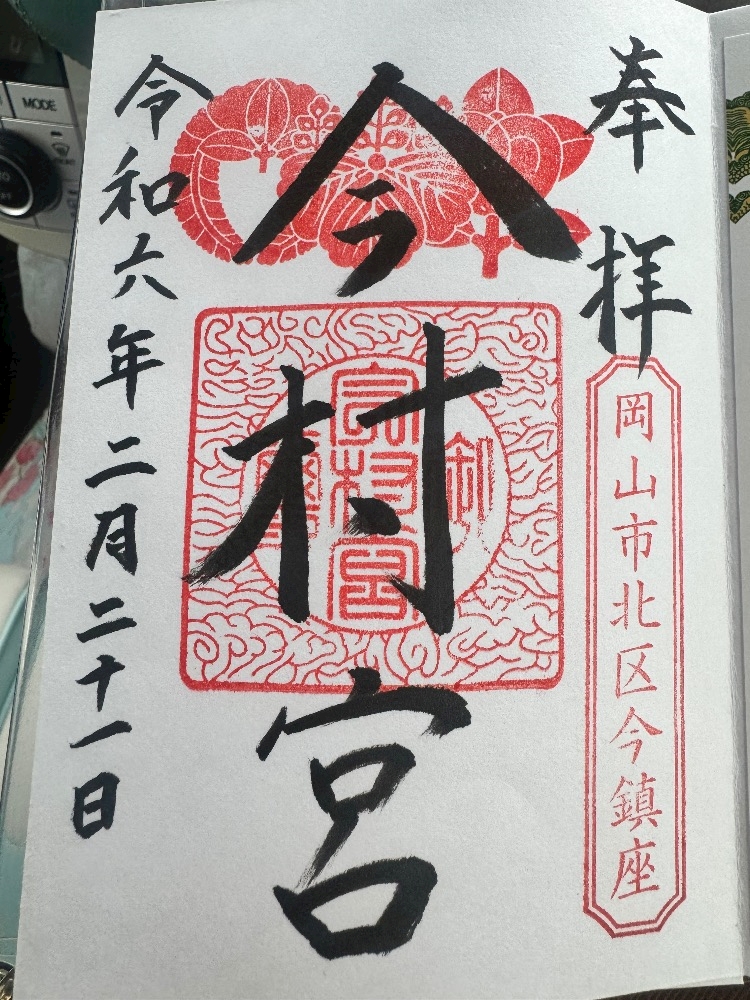 奉拝
岡山市北区今鎮座
今村宮
令和六年二月二十一日
MODE